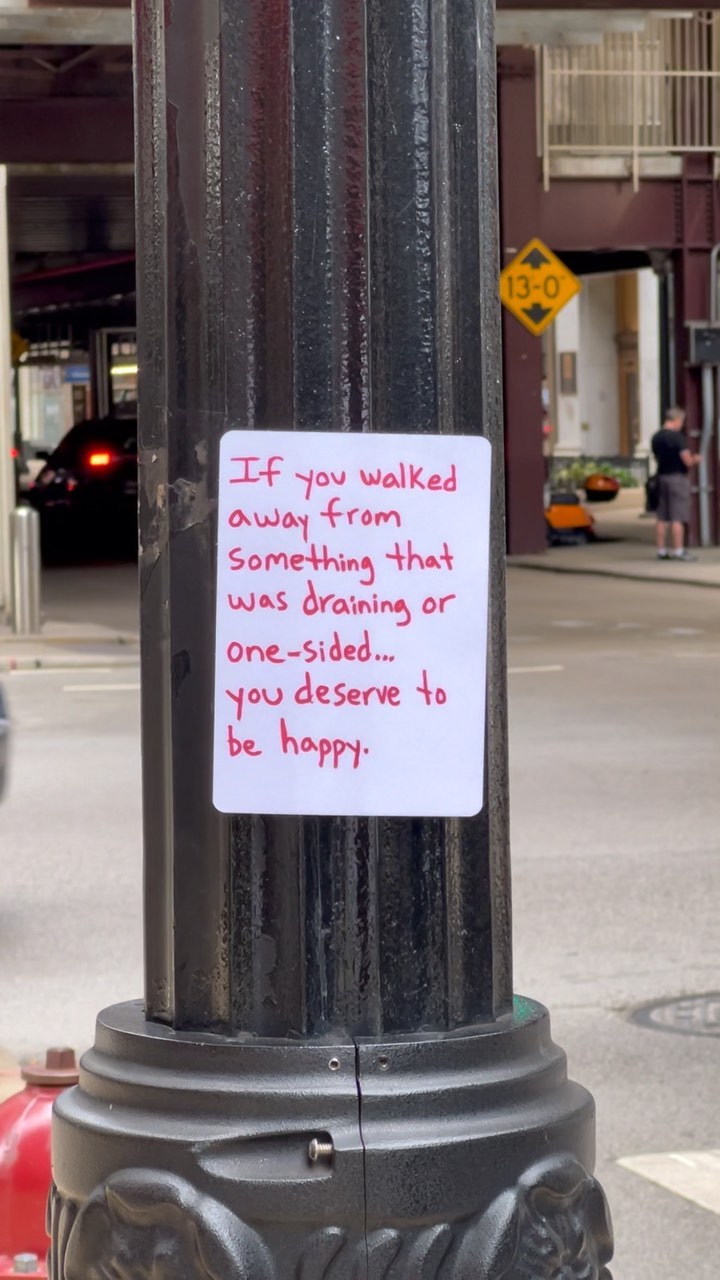 13-0"
If you walked
away from
something that
was draining or
one-sided...
you deserve to
be happy.